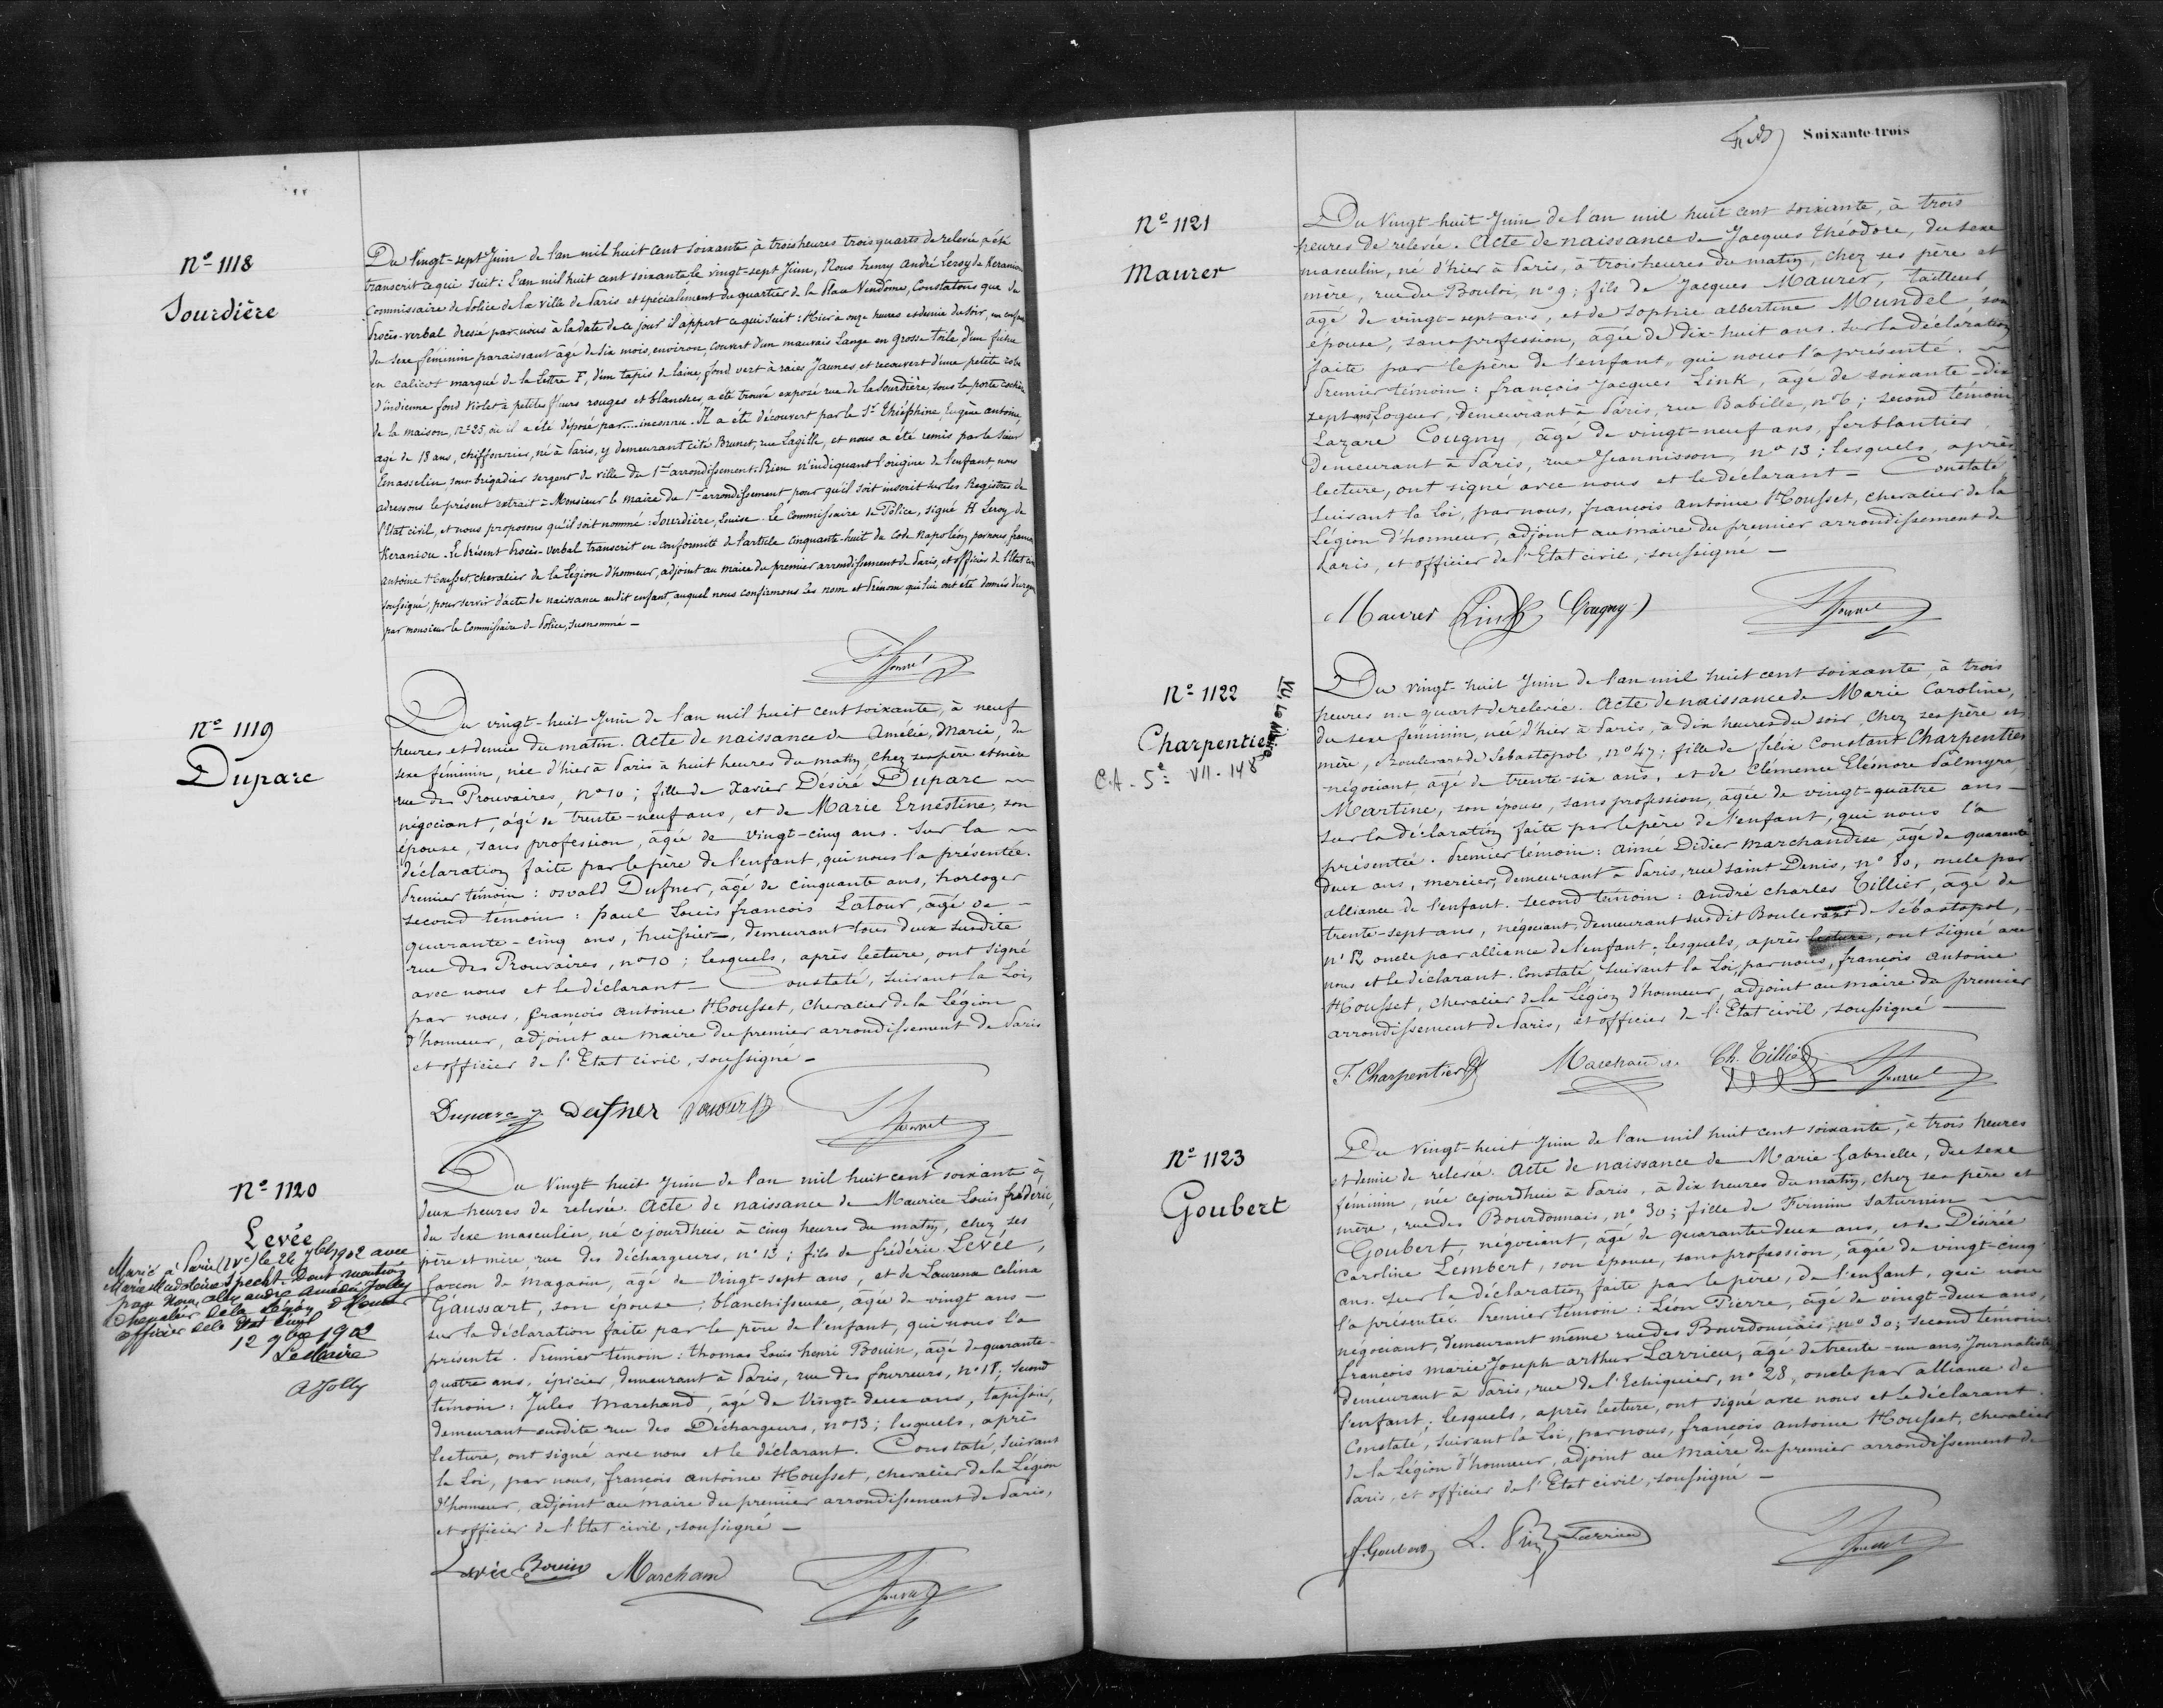 Nº 1118
Sourdière
Du Vingt-sept Juin de l'an mil huit cent soixante à trois heures trois quarts de relevée a été
transcrit ce qui suit : L'an mil huit cent soixante le vingt-sept Juin, Nous henry André Leroy de Keraniou
Commissaire de Police de la Ville de Paris et spécialement du quartier de la Place Vendôme, Constatons que du
Procès-verbal dressé par nous à la date de ce jour il appert ce qui suit : Hier à onze heures et demie du soir, un enfant
du sexe féminin paraissant âgé de dix mois, environ, couvert d'un mauvais Lange en grosse toile, d'un fichu
en calicot marqué de la lettre F, d'un tapis de laine, fond vert à raies Jaunes, et recouvert d'une petite robe
d'indienne fond violet à petites fleurs rouges et blanches, a été trouvé exposé rue de la Sourdière, sous la porte cochère
de la maison, Nº 25, où il a été déposé par .... inconnu. Il a été découvert par le Sr Thiéphine, Eugène antoine,
agé de 18 ans, chiffonnier, né à Paris, y demeurant cité Brunet, rue Lagille, et nous a été remis par le Sieur
Lenasselin, sous-brigadier sergent de ville du 1er arrondissement. Rien n'indiquant l'origine de l'enfant, nous
adressons le présent extrait à Monsieur le Maire du 1er arrondissement pour qu'il soit inscrit sur les Registres de
l'Etat civil, et nous proposons qu'il soit nommé : Sourdière, Louise. Le Commissaire de Police, signé H Leroy de
Keraniou. Le Présent Procès-verbal transcrit en conformité de l'article Cinquante-huit du Code Napoléon, par nous françois
antoine Housset chevalier de la Légion d'honneur, adjoint au maire du premier arrondissement de Paris, et officier de l'Etat civil
soussigné, pour servir d'acte de naissance audit enfant, auquel nous confirmons les nom et Prénom qui lui ont été donnés d'urgence
par monsieur le Commissaire de Police, susnommé —
Nº 1119
Duparc
Du vingt-huit Juin de l'an mil huit cent soixante, à neuf
heures et demie du matin. Acte de naissance de Amélie, Marie, du
sexe féminin, née d'hier à Paris à huit heures du matin, chez ses père et mère
rue des Prouvaires, nº 10 ; fille de Xavier Désiré Duparc
négociant, âgé de trente-neuf ans, et de Marie Ernestine, son
épouse, sans profession, âgée de vingt-cinq ans. Sur la
déclaration faite par le père de l'enfant, qui nous l'a présentée.
Premier témoin : osvald Dufner, âgé de cinquante ans, horloger
second témoin : paul Louis françois Latour, âgé de
quarante-cinq ans, huissier, demeurant tous deux susdite
rue des Prouvaires, nº 10 ; lesquels, après lecture, ont signé
avec nous et le déclarant — Constaté, suivant la Loi,
par nous, françois antoine Housset, chevalier de la Légion
d'honneur, adjoint au maire du premier arrondissement de Paris
et officier de l'Etat civil, soussigné —
Duparc Dufner Latour
Nº 1120
Levée
Marié à Paris (IVe) le 26 7bre 1902 avec
Marie Madeleine Specht. Dont mention
par Nous, Alexandre Amédée Jolly
Chevalier de la Légion d'Honneur
officier de l'Etat Civil
12 9bre 1902
Le Maire
A Jolly
Du Vingt huit Juin de l'an mil huit cent soixante à
deux heures de relevée. Acte de naissance de Maurice Louis frédéric,
du sexe masculin, né cejourdhui à cinq heures du matin, chez ses
père et mère, rue des déchargeurs, nº 13 ; fils de frédéric Levée,
garçon de magasin, âgé de Vingt-sept ans, et de Laurena Celina
Gaussart, son épouse ; blanchisseuse, âgée de vingt ans —
sur la déclaration faite par le père de l'enfant, qui nous l'a
présenté. Premier témoin : thomas Louis henri Bouin, âgé de quarante-
quatre ans, épicier, demeurant à Paris, rue des fourreurs, nº 18 ; second
témoin : Jules Marchand, âgé de Vingt-deux ans, tapissier,
demeurant susdite rue des Déchargeurs, nº 13 ; lesquels, après
lecture, ont signé avec nous et le déclarant. Constaté, suivant
la Loi, par nous, françois antoine Housset, chevalier de la Légion
d'honneur, adjoint au maire du premier arrondissement de Paris,
et officier de l'Etat civil, soussigné —
Levée Bouin Marchand
Soixante-trois
Nº 1121
Maurer
Du Vingt huit Juin de l'an mil huit cent soixante, à trois
heures de relevée. Acte de naissance de Jacques théodore, du sexe
masculin, né d'hier à Paris, à trois heures du matin, chez ses père et
mère, rue du Bouloi, nº 9 ; fils de Jacques Maurer, tailleur
âgé de vingt-sept ans, et de Sophie albertine Mundel, son
épouse, sans profession, âgée de dix-huit ans. Sur la déclaration
faite par le père de l'enfant, qui nous l'a présenté.
Premier témoin : françois Jacques Link, âgé de soixante-dix
sept ans, Logeur, demeurant à Paris, rue Babille, nº 6 ; second témoin
Lazare Cougny, âgé de vingt-neuf ans, ferblantier,
demeurant à Paris, rue Jeannisson, nº 13 : lesquels, après
lecture, ont signé avec nous et le déclarant — Constaté,
suivant la Loi, par nous, françois antoine Housset, chevalier de la
Légion d'honneur, adjoint au maire du premier arrondissement de
Paris, et officier de l'Etat civil, soussigné —
Maurer Link Cougny
Nº 1122
Charpentier
C.A. 5e VII. 148
VU, Le Maire
Du vingt-huit Juin de l'an mil huit cent soixante, à trois
heures un quart de relevée. Acte de naissance de Marie Caroline,
du sexe féminin, née d'hier à Paris, à dix heures du soir, chez ses père et
mère, Boulevart de Sébastopol, nº 47 ; fille de félix Constant Charpentier
négociant, âgé de trente-six ans, et de Clémence Eléonore Palmyre
Martine, son épouse, sans profession, âgée de vingt-quatre ans —
Sur la déclaration faite par le père de l'enfant, qui nous l'a
présentée. Premier témoin : aimé Didier marchandise, âgé de quarante
deux ans, mercier, demeurant à Paris, rue Saint Denis, nº 80, oncle par
alliance de l'enfant. second témoin : andré charles Tillier, âgé de
trente-sept ans, négociant, demeurant susdit Boulevart de Sébastopol,
nº 52 oncle par alliance de l'enfant ; lesquels, après lecture, ont signé avec
nous et le déclarant. Constaté, suivant la Loi, par nous, françois antoine
Housset, chevalier de la Légion d'honneur, adjoint au maire du premier
arrondissement de Paris, et officier de l'Etat civil, soussigné —
F. Charpentier Ch. Tillier
Nº 1123
Goubert
Du Vingt-huit Juin de l'an mil huit cent soixante, à trois heures
et demie de relevée. Acte de naissance de Marie Gabrielle, du sexe
féminin, née cejourdhui à Paris, à dix heures du matin, chez ses père et
mère, rue des Bourdonnais, nº 30 ; fille de Firmin Saturnin
Goubert, négociant, âgé de quarante deux ans, et de Désirée
Caroline Lembert, son épouse, sans profession, âgée de vingt-cinq
ans. Sur la déclaration faite par le père, de l'enfant, qui nous
l'a présentée. Premier témoin : Léon Pierre, âgé de vingt-deux ans,
négociant, demeurant même rue des Bourdonnais, nº 30 ; second témoin
françois marie Joseph arthur Larrieu, âgé de trente-un ans, Journaliste
demeurant à Paris, rue de l'Echiquier, nº 28, oncle par alliance de
l'enfant ; lesquels, après lecture, ont signé avec nous et le déclarant.
Constaté, suivant la Loi, par nous, françois antoine Housset, chevalier
de la Légion d'honneur, adjoint au maire du premier arrondissement de
Paris, et officier de l'Etat civil, soussigné —
Larrieu